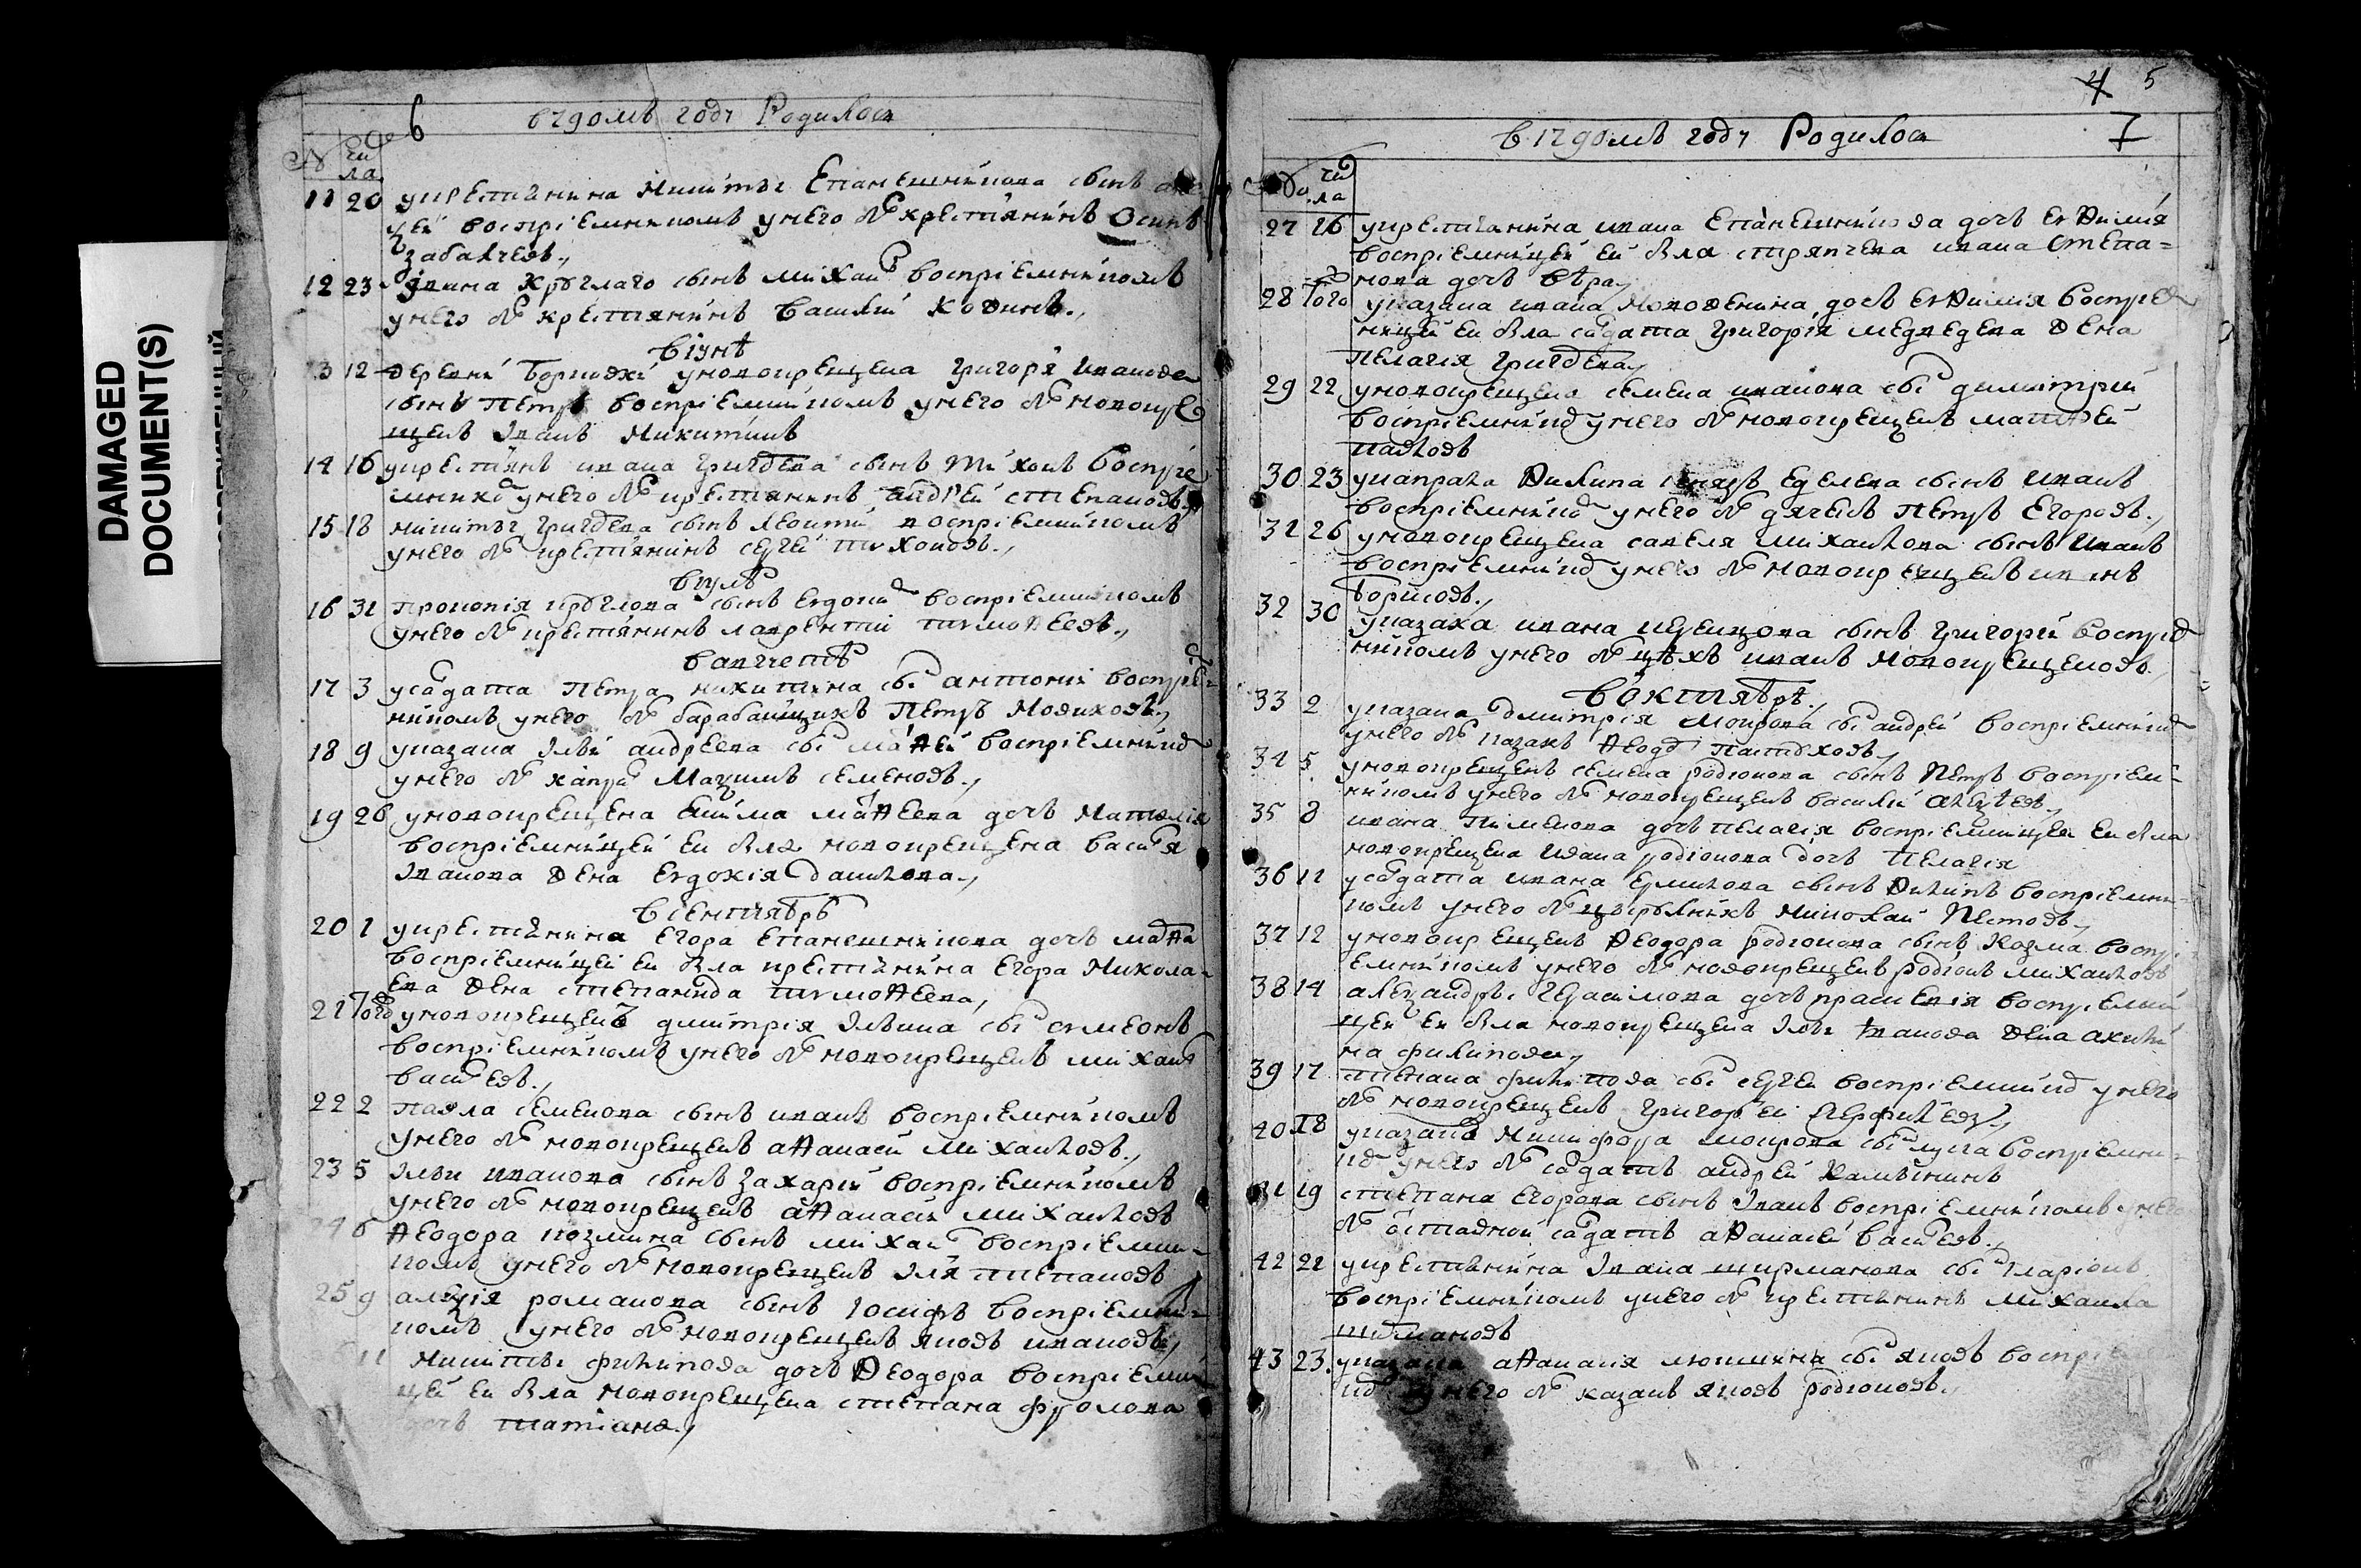 DAMAGED
DOCUMENT(S)
6
в 1790мъ году Родилося
чи
сла
11 20 укрестьянина Никиты Епанешникова сынъ
восприемникомъ унего былъ хрестьянинъ Осипъ
12 23 Ивана Круглаго сынъ михаилъ восприемникомъ
унего былъ крестьянинъ василий
виүнѣ
13 12 деревни уновокрещена григорья иванова
сынъ петръ восприемникомъ унего былъ новокре
щенъ Иванъ Никитинъ
14 16 укрестьянъ ивана григорьева сынъ тихонъ воспрье
мнико унего былъ крестьянинъ андрей степановъ
15 18 никиты григорьева сынъ леонтий восприемникомъ
унего былъ крестьянинъ сергей тихоновъ
виүлѣ
16 31 прокопия круглова сынъ евдокимъ восприемникомъ
унего былъ крестьянинъ лаврентий тимоѳеевъ
вавгусте
17 3 усолдата петра никитина сынъ антоний воспрье
никомъ унего былъ барабанщикъ петръ Новиковъ
18 9 указака Ильи андреева сынъ матѳей восприемнико
унего былъ капралъ Маѯимъ семеновъ
19 26 уновокрещена матѳеева дочь Наталия
восприемницей ей была новокрещена василья
Иванова жена Евдокия данилова
всентябрѣ
20 1 укрестьянина Егора Епанешникова дочь марѳа
восприемницей ей была крестьянина Егора Никола
ева жена степанида тимоѳеева
21 Того уновокрещенъ дмитрия Ильина сынъ симеонъ
восприемникомъ унего былъ новокрещенъ михаилъ
васильевъ
22 2 павла семенова сынъ иванъ восприемникомъ
унего былъ новокрещенъ аѳанасий михаиловъ
23 5 Ильи иванова сынъ захарий восприемникомъ
унего былъ новокрещенъ аѳанасий михаиловъ
24 6 Ѳеодора козмина сынъ михаилъ восприемни
комъ унего былъ новокрещенъ Илья степановъ
25 9 алеѯия романова сынъ Иосифъ восприемни
комъ унего былъ новокрещенъ яковъ ивановъ
11 Никиты филипова дочь Ѳеодора восприемни
цей ей была новокрещена степана фролова
дочь татиана
4 5
7
в 1790мъ году Родилося
чи
сла
27 16 укрестьянина ивана Епанешникова дочь Евѳимия
восприемницей ей была стряпчева ивана степа
нова дочь вѣра
28 Того указака ивана дочь Евѳимия восприем
ницей ей была солдата григория медведева жена
пелагия григорьева
29 22 уновокрещена семена иванова сынъ димитрий
восприемнико унего былъ новокрещенъ матѳей
павловъ
30 23 укапрала Филипа сынъ иванъ
восприемнико унего былъ дячекъ петръ Егоровъ
31 26 уновокрещена савеля михаилова сынъ Иванъ
восприемнико унего былъ новокрещенъ иванъ
борисовъ
32 30 указака ивана сынъ григорей восприем
никомъ унего былъ иванъ Новокрещеновъ
Воктябрѣ
33 2 указака дмитрия Мокрова сынъ андрей восприемнико
унего былъ казакъ Ѳеодоръ пастуховъ
34 5 уновокрещенъ семена родионова сынъ петръ восприем
никомъ унего былъ новокрещенъ василий алеѯеевъ
35 8 ивана пименова дочь пелагия восприемницей ей была
новокрещена Ивана родионова дочь пелагия
36 11 усолдата ивана Ермилова сынъ Филипъ восприемни
комъ унего былъ цырульникъ Николай
37 12 уновокрещенъ Ѳеодора родионова сынъ козма воспри
емникомъ унего былъ новокрещенъ родионъ михаиловъ
38 14 алеѯандры герасимова дочь прасковия восприемни
цей ей была новокрещена Ильи Иванова жена акили
на филипова
39 17 степана филипова сынъ сергей восприемнико унего
былъ новокрещенъ григорей
40 18 указака Никифора мокрова сынъ лука восприемни
ко унего былъ солдатъ андрей
41 19 степана Егорова сынъ Иванъ восприемникомъ унего
былъ отставной солдатъ аѳанасей васильевъ
42 22 укрестьянина Ивана ширманова сынъ иларионъ
восприемникомъ унего былъ крестьянинъ михаила
ширмановъ
43 23 указака аѳанасия сынъ яковъ восприемни
ко унего былъ казакъ яковъ родионовъ